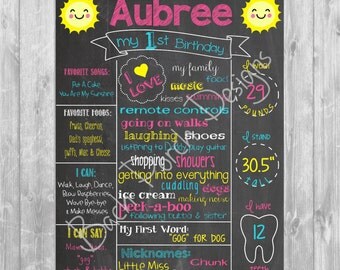 Aubree
my 1st Birthday
FAVORITE SONGS:
Pat A Cake,
You Are My Sunshine
FAVORITE FOODS:
Fruits, Cheerios,
Dad's spaghetti,
Puffs, Mac & Cheese
I CAN:
Walk, Laugh, Dance,
Blow Raspberries,
Wave Bye-bye
& Make Messes
I CAN SAY
I LOVE
my family
tickles
music
kisses
remote controls
going on walks
laughing Shoes
listening to Daddy play guitar
shopping showers
getting into everything
cuddling dogs
ice cream making noise
peek-a-boo
following bubba & sister
My First Word:
"GOG" FOR DOG
Nicknames:
Little Miss Chunk
29
POUNDS
I STAND
30.5"
TALL
I HAVE
12
teeth